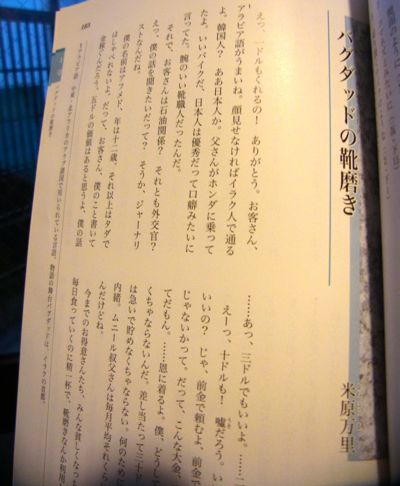 バグダッドの靴磨き
米原万里
えっ、一ドルもくれるの！　ありがとう。お客さん、
アラビア語がうまいね。顔見せなければイラク人で通る
よ。韓国人？　ああ日本人か。父さんがホンダに乗って
たよ。いいバイクだ、日本人は優秀だって口癖みたいに
言ってた。腕のいい靴職人だったんだ。
それで、お客さんは石油関係？　それとも外交官？
えっ、僕の話を聞きたいだって？　そうか、ジャーナリ
ストなんだね。
僕の名前はアフメド、年は十二歳、それ以上はタダで
はしゃべれないよ。だって、お客さん、僕のこと書いて
金稼ぐんだろう。五ドルの価値はあると思うよ、僕の話
……あっ、三ドルでもいいよ。……二
えーっ、十ドルも！　嘘だろう。い
いいの？　じゃ、前金で頼むよ、前金で
じゃないかって。だって、こんな大金、
てだもん。……恩に着るよ。僕、どうして
くちゃならないんだ。差し当たって三十
は急いで貯めなくちゃならない。何のため
内緒。ムニール叔父さんは毎月平均それくら
んだけどね。
今までのお得意さんたち、みんな貧しくなっ
毎日食っていくのに精一杯で、靴磨きなんか利用
183